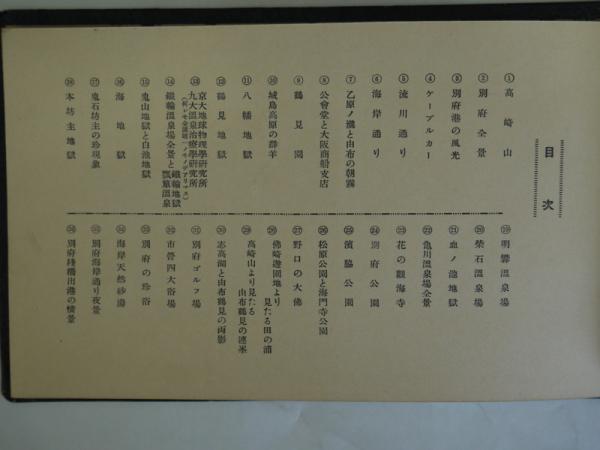 目次
① 高崎山
② 別府全景
③ 別府港の風光
④ ケーブルカー
⑤ 流川通り
⑥ 海岸通り
⑦ 乙原ノ瀧と由布の朝霧
⑧ 公會堂と大阪商船支店
⑨ 鶴見園
⑩ 城島高原の群羊
⑪ 八幡地獄
⑫ 鶴見地獄
⑬ 京大地球物理學研究所
九大溫泉治療學研究所
⑭ 鐵輪溫泉場全景と鐵輪地獄
瓢簞溫泉
⑮ 鬼山地獄と白池地獄
⑯ 海地獄
⑰ 鬼石坊主の珍現象
⑱ 本坊主地獄
⑲ 明礬溫泉場
⑳ 柴石溫泉場
㉑ 血ノ池地獄
㉒ 龜川溫泉場全景
㉓ 花の觀海寺
㉔ 別府公園
㉕ 濱脇公園
㉖ 松原公園と海門寺公園
㉗ 野口の大佛
㉘ 佛崎遊園地より
見たる田の浦
㉙ 高崎山より見たる
由布鶴見の連峯
㉚ 志高湖と由布鶴見の両影
㉛ 別府ゴルフ場
㉜ 市營四大浴場
㉝ 別府の珍浴
㉞ 海岸天然砂湯
㉟ 別府海岸通り夜景
㊱ 別府棧橋出港の情景